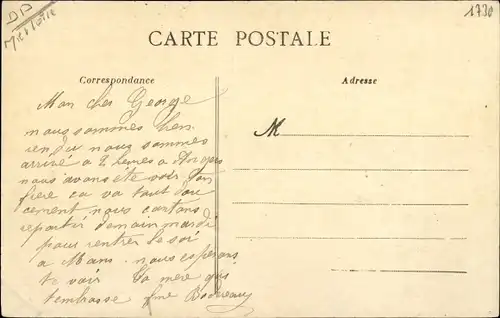 DD
1730
CARTE POSTALE
Correspondance
Adresse
Mon cher George
nous sommes bien
rendu nous sommes
arrivé a 2 heures a Angers
nous avons été voir ton
frère ca va tout dou
cement nous contons
repartir demain mardi
pour rentrer le soir
a Mans nous esperons
te voir Ta mere qui
t'embrasse fme
M